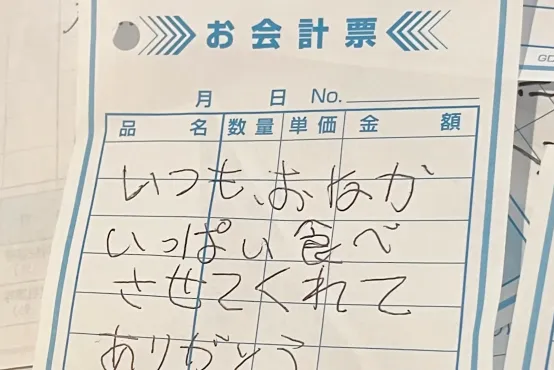 お会計票
月 日 No.
品名 数量 単価 金額
いつも、おなか
いっぱい食べ
させてくれて
ありがとう